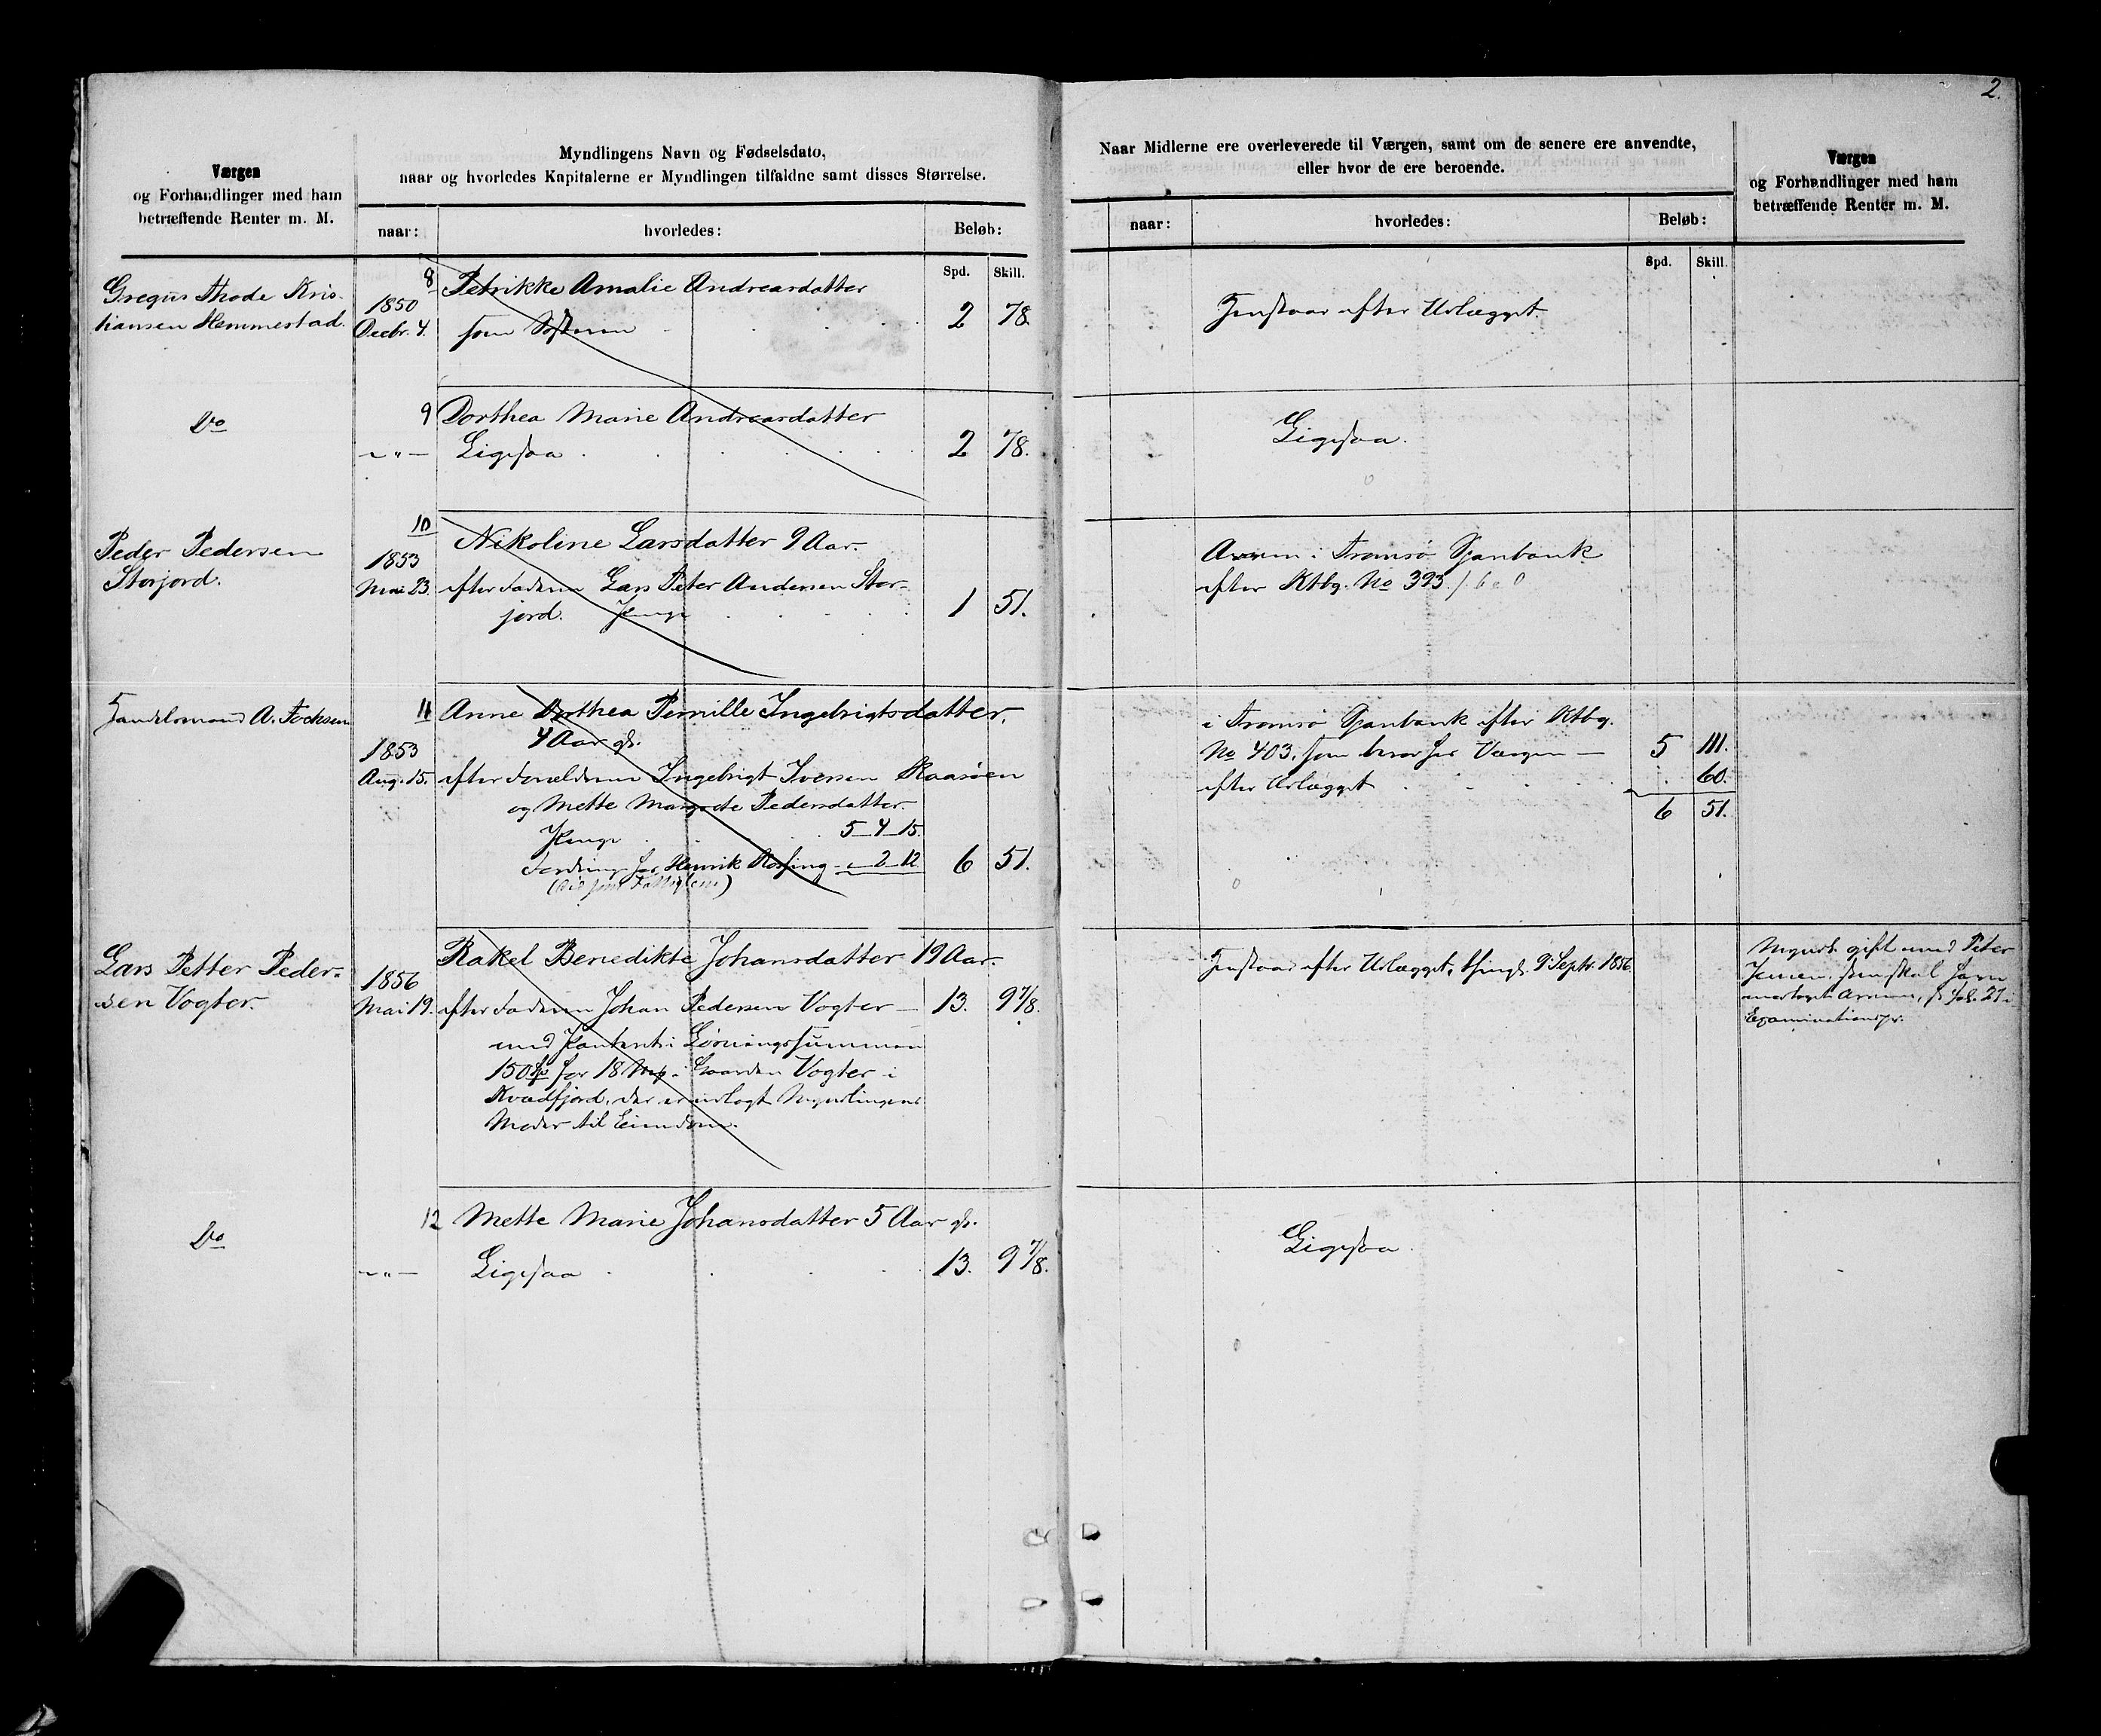 2.
Værgen
og Forhandlinger med ham
betræffende Renter m. M.
Myndlingens Navn og Fødselsdato,
naar og hvorledes Kapitalerne er Myndlingen tilfaldne samt disses Størrelse.
naar:
hvorledes:
Beløb:
Spd. Skill.
Naar Midlerne ere overleverede til Værgen, samt om de senere ere anvendte,
eller hvor de ere beroende.
naar:
hvorledes:
Beløb:
Spd. Skill.
Værgen
og Forhandlinger med ham
betræffende Renter m. M.
Gregus Thode Kris-
tiansen Hemmestad.
8
1850
Decbr. 4.
Petrikke Amalie Andreasdatter
som Søsteren 2 78.
Henstaar efter Udlægget.
Do
9
— " —
Dorthea Marie Andreasdatter
Ligesaa 2 78.
Ligesaa.
Peder Pedersen
Storjord.
10
1853
Mai 23.
Nikoline Larsdatter 9 Aar.
efter Faderen Lars Peter Andersen Stor-
jord. Penge 1 51.
Arven i Tromsø Sparebank
efter Ktbg. No 393.
Handelsmand A. Fochsen
11
1853
Aug. 15.
Anne Dorthea Pernille Ingebrigtsdatter,
4 Aar gl.
efter Forældrene Ingebrigt Iversen Raasøen
og Mette Margrete Pedersdatter
Penge 5-4-15.
Fordring hos Henrik - 2-12 6 51.
i Tromsø Sparebank efter Ktbg.
No 403, som beror hos Værgen — 5 111.
efter Udlægget 60.
6 51.
Lars Petter Peder-
sen Vogter.
1856
Mai 19.
Rakel Benedikte Johansdatter 19 Aar.
efter Faderen Johan Pedersen Vogter — 13. 9 7/8.
med Panteret i Løsningssummen
150 for 18 i Gaarden Vogter i
Kvædfjord, der er udlagt Myndlingens
Moder til Eiendom.
Henstaar efter Udlægget, thingl. 9 Septr. 1856.
Myndl. gift med Peter
Jensen, som skal have
modtaget Arven, fol. 27 i
Examinationspr.
Do
12
— " —
Mette Marie Johansdatter 5 Aar gl.
Ligesaa 13. 9 7/8.
Ligesaa.